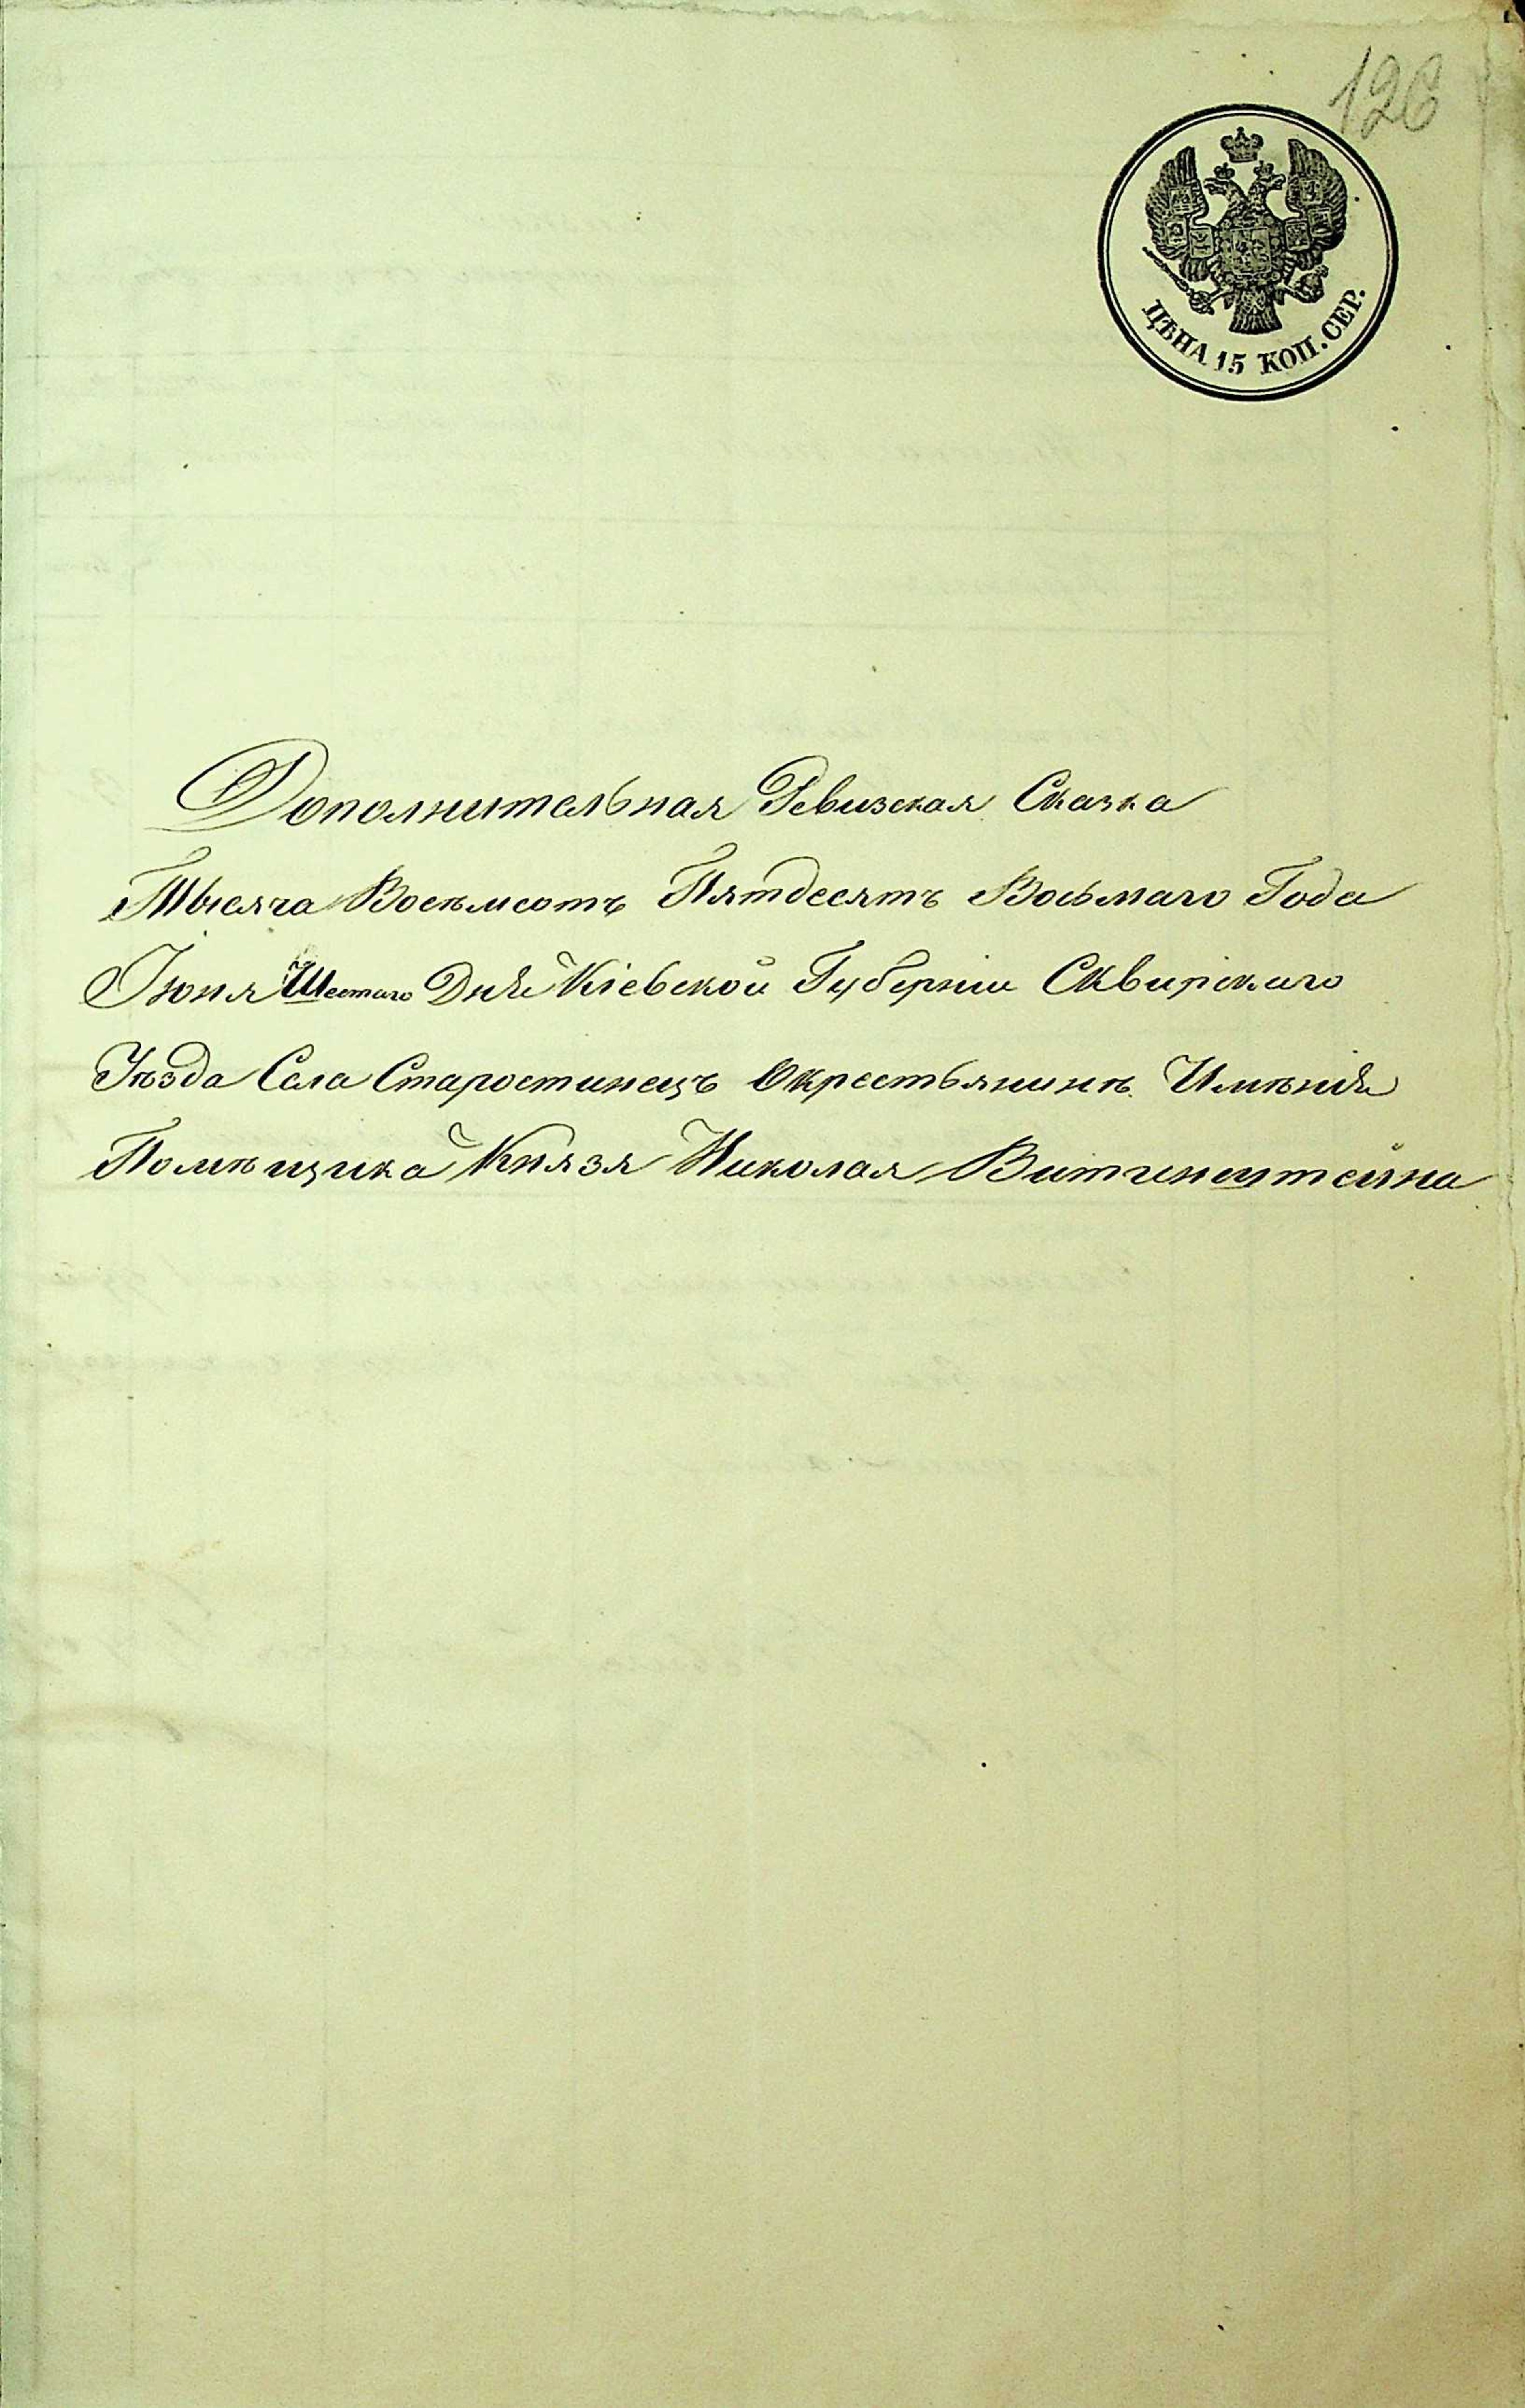 126
ЦѢНА 15 КОП. СЕР.
Дополнительная Ревизская Сказка
Тысяча Восѣмсотъ Пятдесятъ Восьмаго Года
Іюня Шестаго Дня Кіевской Губерніи Сквирскаго
Уѣзда Села Старостинецъ Окрестьянинѣ Имѣнія
Помѣщика Князя Николая Витгинштейна